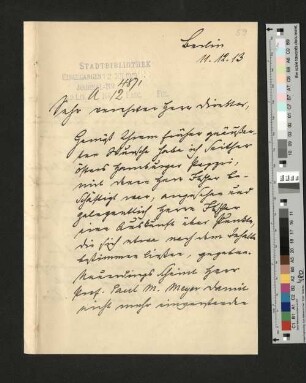 Berlin
11.12.13
STADTBIBLIOTHEK
Sehr verehrter Herr Direktor,
Gemäß Ihrem früher geäußer-
ten Wunsche habe ich seither
öfters Hamburger Papyri,
mit denen Herr
schäftigt war, angesehen und
gelegentlich Herrn
eine Auskunft über Punkte,
die sich etwa nach dem Inhalte
bestimmen ließen, gegeben.
Neuerdings scheint Herr
Prof. Paul M. Meyer damit
nicht mehr einverstanden